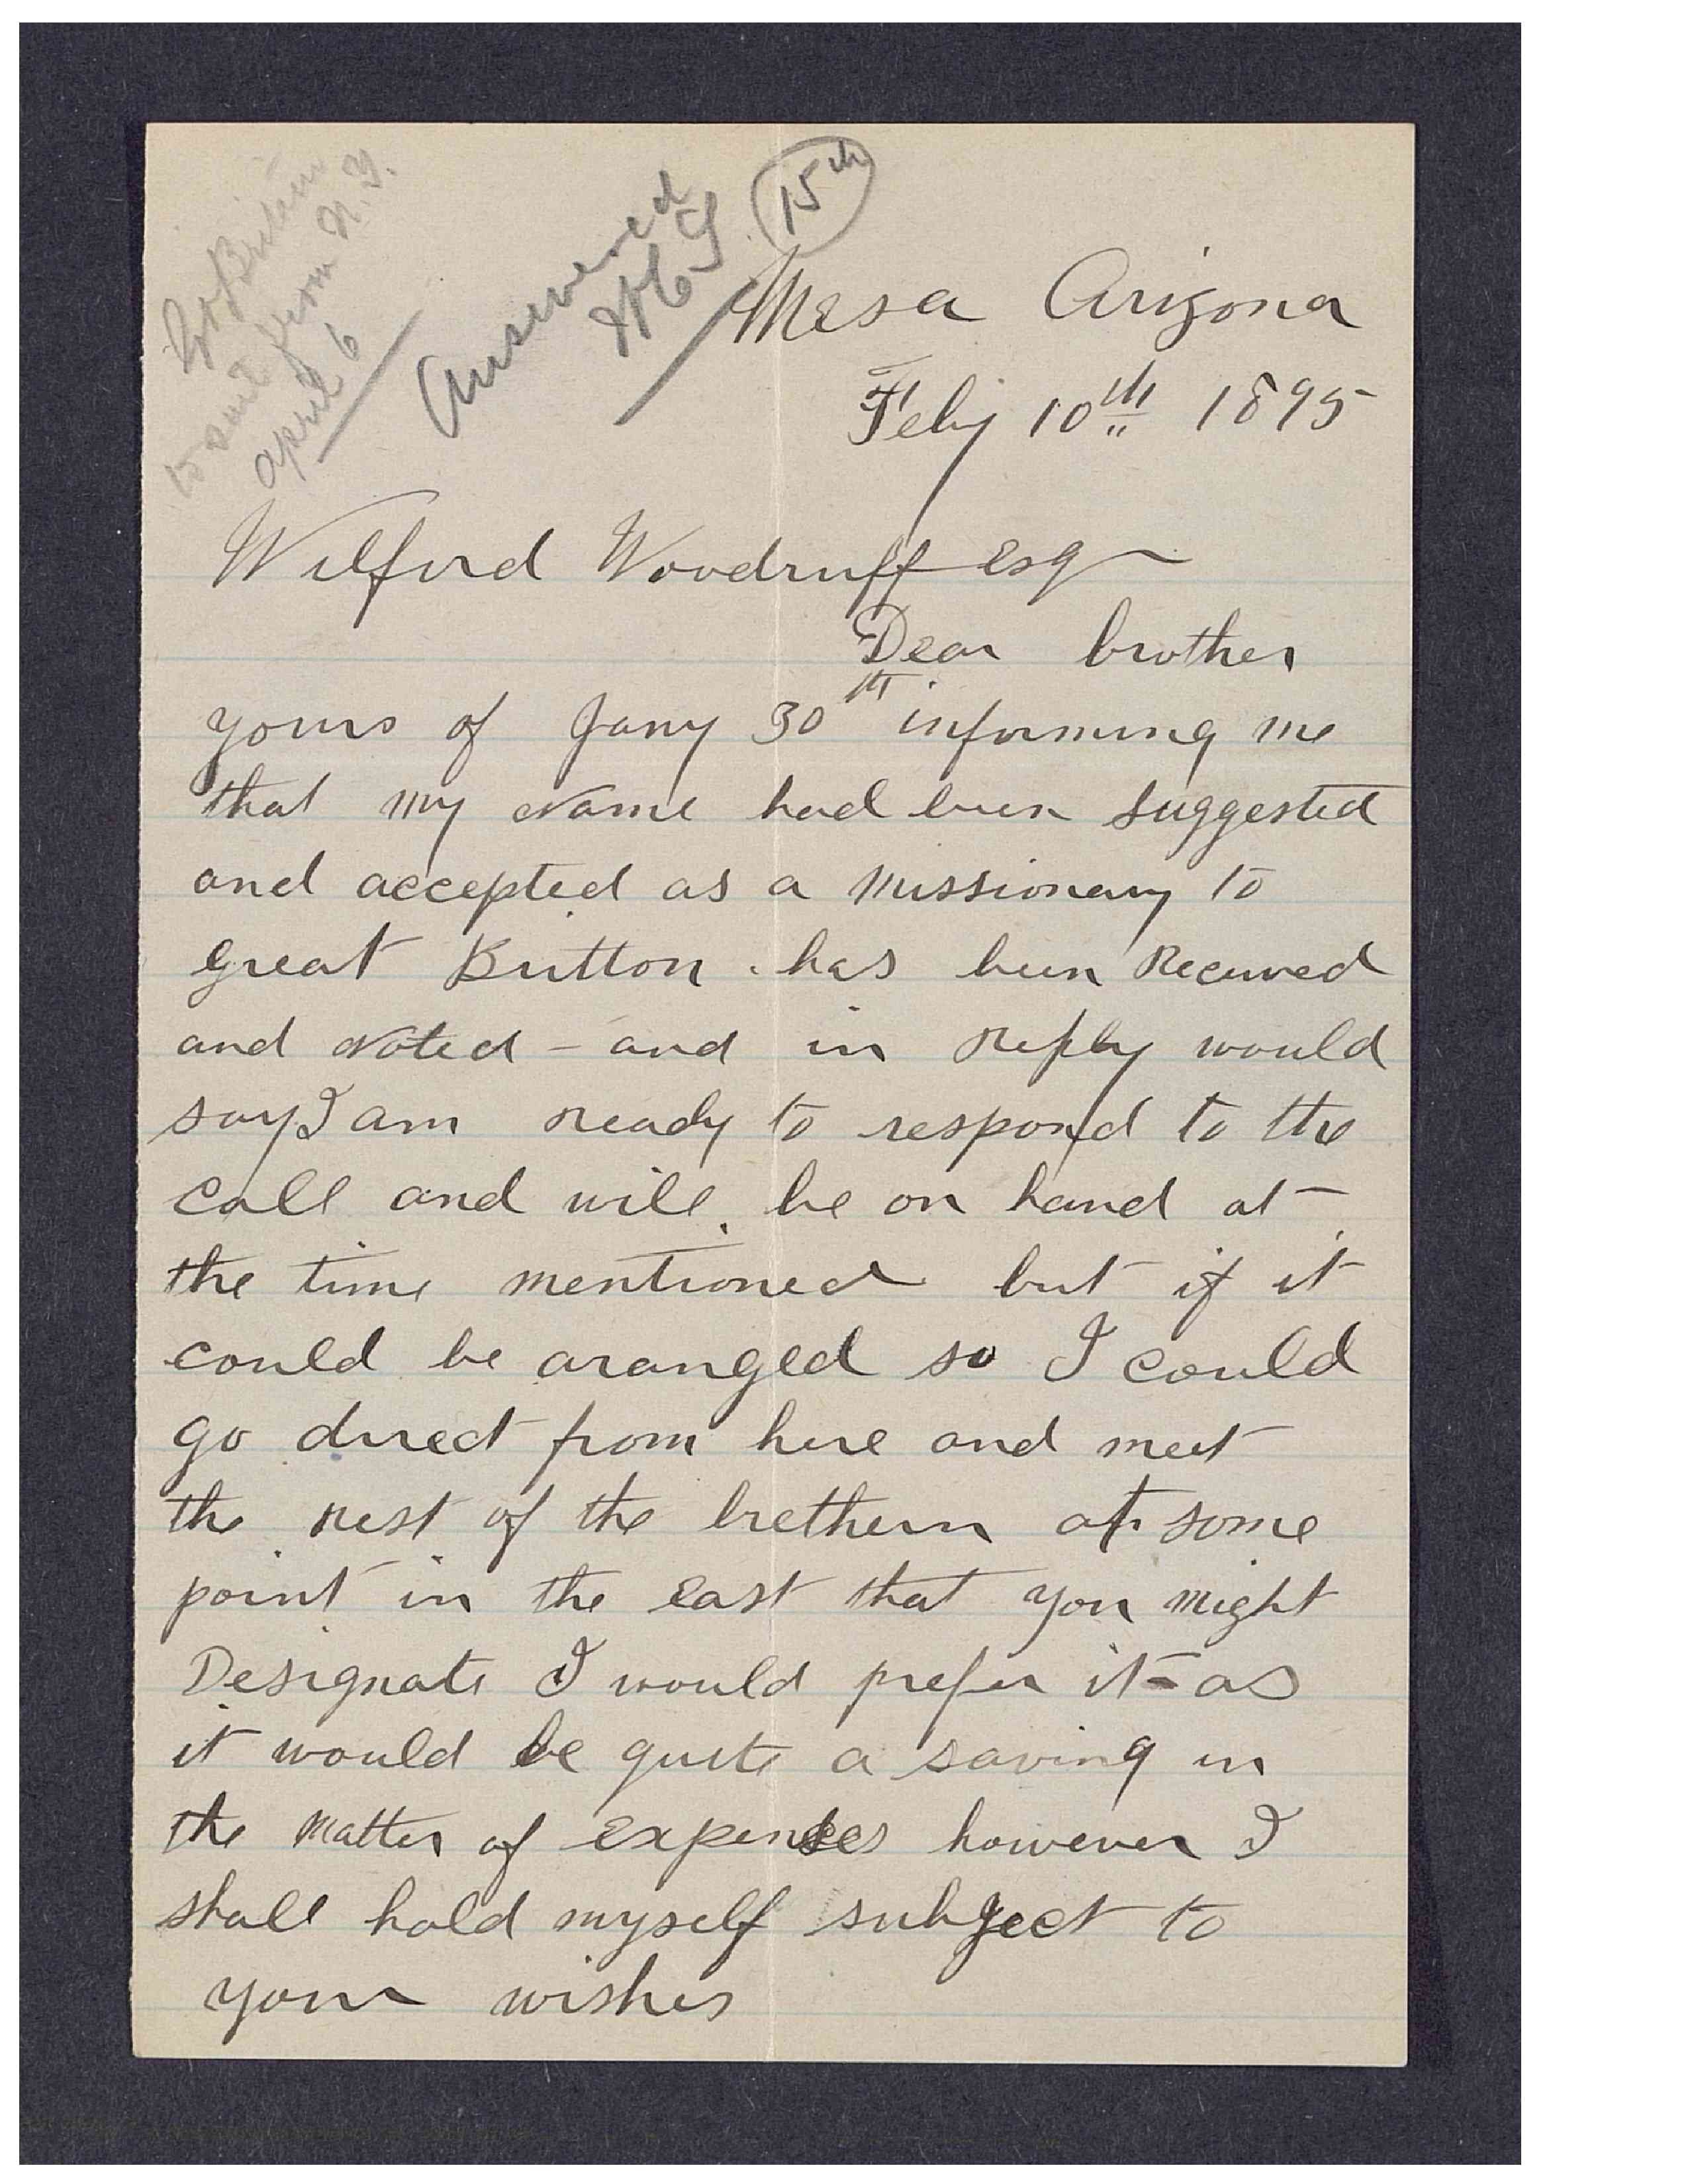 Gt Britain
to sail from N. Y.
april 6
Answered
15th
Mesa Arizona
Feby 10th 1895
Wilford Woodruff Esq
Dear brother
yours of Jany 30th informing me
that my Name had been suggested
and accepted as a Missionary to
great Britton has been Received
and Noted - and in Reply would
say I am ready to respond to the
call and will be on hand at
the time mentioned but if it
could be aranged so I could
go direct from here and meet
the rest of the brethern at some
point in the east that you might
Designate I would prefer it - as
it would be quite a saving in
the Matter of Expenses however I
shall hold myself subject to
your wishes